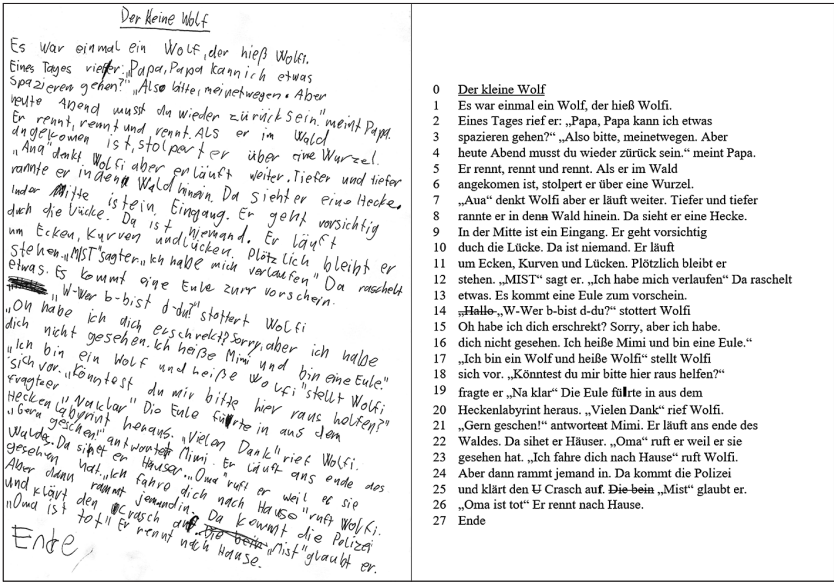 Der kleine Wolf
Es war einmal ein Wolf, der hieß Wolfi.
Eines Tages rief er: „Papa, Papa kann ich etwas
spazieren gehen?" „Also bitte, meinetwegen. Aber
heute Abend musst du wieder zürück sein." meint Papa.
Er rennt, rennt und rennt. Als er im Wald
angekommen ist, stolpert er über eine Wurzel.
„Aua" denkt Wolfi aber er läuft weiter. Tiefer und tiefer
rannte er in den Wald hinein. Da sieht er eine Hecke.
In der Mitte ist ein Eingang. Er geht vorsichtig
duch die Lücke. Da ist niemand. Er läuft
um Ecken, Kurven und Lücken. Plötzlich bleibt er
stehen. „MIST" sagt er. „Ich habe mich verlaufen" Da raschelt
etwas. Es kommt eine Eule zum vorschein.
„W-Wer b-bist d-du?" stottert Wolfi
"Oh habe ich dich erschrekt? Sorry, aber ich habe
dich nicht gesehen. Ich heiße Mimi und bin eine Eule."
„Ich bin ein Wolf und heiße Wolfi" stellt Wolfi
sich vor. „Könntest du mir bitte hier raus helfen?"
fragte er „Na klar" Die Eule fürte in aus dem
Heckenlabyrint heraus. „Vielen Dank" rief Wolfi.
„Gern geschen!" antwortet Mimi. Er läuft ans ende des
Waldes. Da sihet er Häuser. „Oma" ruft er weil er sie
gesehen hat. „Ich fahre dich nach Hause" ruft Wolfi.
Aber dann rammt jemand in. Da kommt die Polizei
und klärt den Crasch auf. Die bein „Mist" glaubt er.
„Oma ist tot" Er rennt nach Hause.
Ende
0 Der kleine Wolf
1 Es war einmal ein Wolf, der hieß Wolfi.
2 Eines Tages rief er: „Papa, Papa kann ich etwas
3 spazieren gehen?“ „Also bitte, meinetwegen. Aber
4 heute Abend musst du wieder zurück sein.“ meint Papa.
5 Er rennt, rennt und rennt. Als er im Wald
6 angekommen ist, stolpert er über eine Wurzel.
7 „Aua“ denkt Wolfi aber er läuft weiter. Tiefer und tiefer
8 rannte er in denn Wald hinein. Da sieht er eine Hecke.
9 In der Mitte ist ein Eingang. Er geht vorsichtig
10 duch die Lücke. Da ist niemand. Er läuft
11 um Ecken, Kurven und Lücken. Plötzlich bleibt er
12 stehen. „MIST“ sagt er. „Ich habe mich verlaufen“ Da raschelt
13 etwas. Es kommt eine Eule zum vorschein.
14 „Hallo „W-Wer b-bist d-du?“ stottert Wolfi
15 Oh habe ich dich erschrekt? Sorry, aber ich habe.
16 dich nicht gesehen. Ich heiße Mimi und bin eine Eule.“
17 „Ich bin ein Wolf und heiße Wolfi“ stellt Wolfi
18 sich vor. „Könntest du mir bitte hier raus helfen?“
19 fragte er „Na klar“ Die Eule fürte in aus dem
20 Heckenlabyrint heraus. „Vielen Dank“ rief Wolfi.
21 „Gern geschen!“ antwortent Mimi. Er läuft ans ende des
22 Waldes. Da sihet er Häuser. „Oma“ ruft er weil er sie
23 gesehen hat. „Ich fahre dich nach Hause“ ruft Wolfi.
24 Aber dann rammt jemand in. Da kommt die Polizei
25 und klärt den U Crasch auf. Die bein „Mist“ glaubt er.
26 „Oma ist tot“ Er rennt nach Hause.
27 Ende